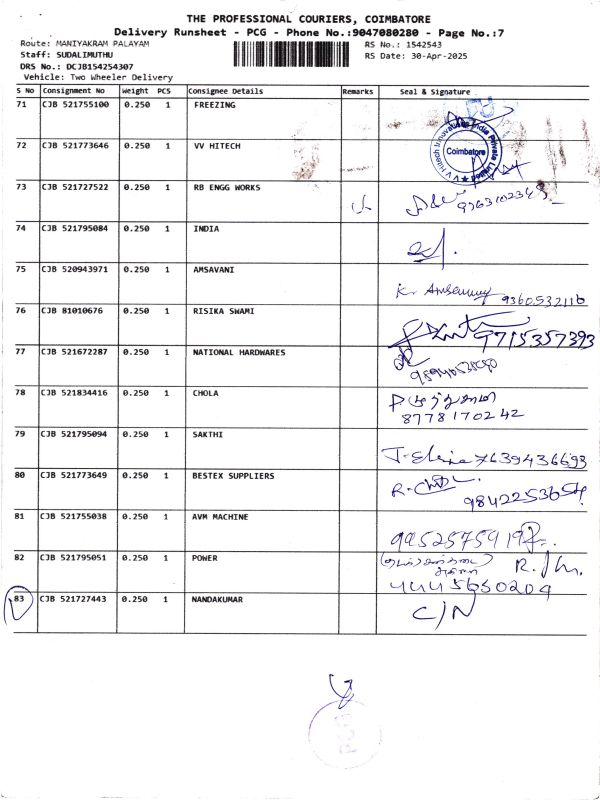 THE PROFESSIONAL COURIERS, COIMBATORE
Delivery Runsheet - PCG - Phone No.:9047080280 - Page No.:7
Route: MANIYAKRAM PALAYAM RS No.: 1542543
Staff: SUDALIMUTHU RS Date: 30-Apr-2025
DRS No.: DCJB154254307
Vehicle: Two Wheeler Delivery
S No Consignment No Weight PCS Consignee Details Remarks Seal & Signature
71 CJB 521755100 0.250 1 FREEZING
72 CJB 521773646 0.250 1 VV HITECH Coimbatore
73 CJB 521727522 0.250 1 RB ENGG WORKS
74 CJB 521795084 0.250 1 INDIA
75 CJB 520943971 0.250 1 AMSAVANI 9360532116
76 CJB 81010676 0.250 1 RISIKA SWAMI 9715357393
77 CJB 521672287 0.250 1 NATIONAL HARDWARES
78 CJB 521834416 0.250 1 CHOLA
8778170242
79 CJB 521795094 0.250 1 SAKTHI 7639436693
80 CJB 521773649 0.250 1 BESTEX SUPPLIERS
81 CJB 521755038 0.250 1 AVM MACHINE
82 CJB 521795051 0.250 1 POWER
83 CJB 521727443 0.250 1 NANDAKUMAR C/N